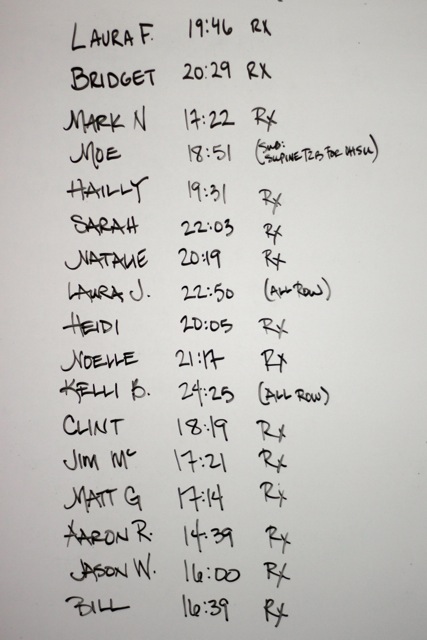 LAURA F. 19:46 RX
BRIDGET 20:29 RX
MARK N 17:22 Rx
MOE 18:51 (SUB: SUPINE T2B FOR HHSU)
HAILLY 19:31 Rx
SARAH 22:03 Rx
NATALIE 20:19 Rx
LAURA J. 22:50 (ALL ROW)
HEIDI 20:05 Rx
NOELLE 21:17 Rx
KELLI B. 24:25 (ALL ROW)
CLINT 18:19 Rx
JIM Mc 17:21 Rx
MATT G 17:14 Rx
AARON R. 14:39 Rx
JASON W. 16:00 Rx
BILL 16:39 Rx